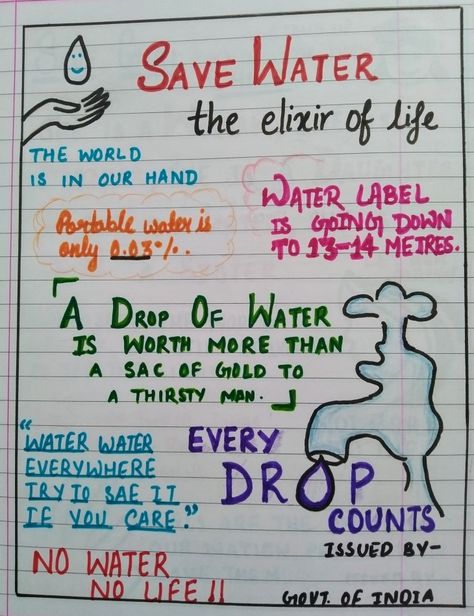 SAVE WATER
the elixir of life
THE WORLD
IS IN OUR HAND
Portable water is
only 0.03%.
WATER LABEL
IS GOING DOWN
TO 13-14 METRES.
「A DROP OF WATER
IS WORTH MORE THAN
A SAC OF GOLD TO
A THIRSTY MAN.」
"WATER WATER
EVERYWHERE
TRY TO SAE IT
IF YOU CARE."
EVERY
DROP
COUNTS
NO WATER
NO LIFE !!
ISSUED BY-
GOVT. OF INDIA